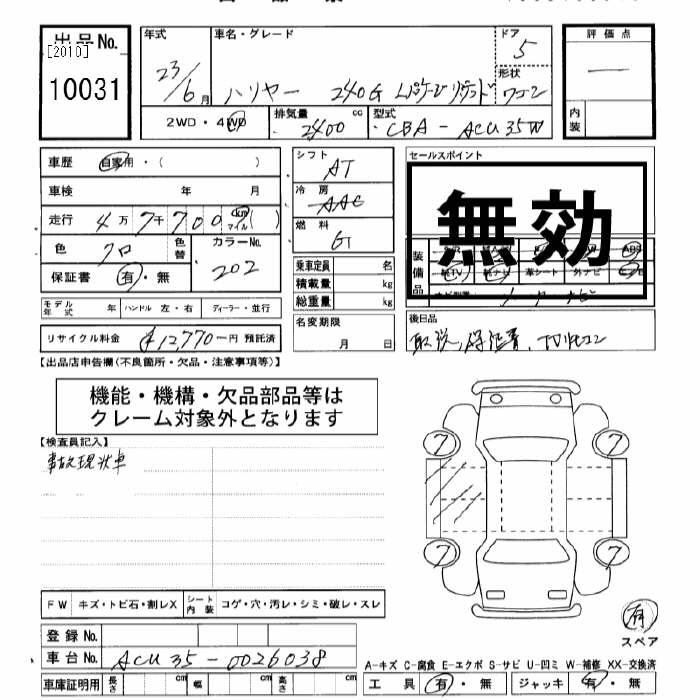 出品No.
[2010]
10031
年式
23/6月
車名・グレード
ハリヤー 240G Lパッケージリミテッド
ドア
5
形状
ワゴン
評価点
一
内装
2WD・4WD
排気量
2400 cc
型式
CBA-ACU35W
車歴 自家用・( )
車検 年 月
走行 4万7千700 km マイル( )
色 クロ
色替
カラーNo.
202
保証書 有・無
シフト
AT
冷房
AAC
燃料
乗車定員 名
積載量 kg
総重量 kg
セールスポイント
無効
装備品
革シート
外ナビ
モデル年式 年 ハンドル 左・右 ディーラー・並行
リサイクル料金 ¥12,770-円 預託済
名変期限
月 日
後日品
取説,保証書,TVリモコン
【出品店申告欄(不良箇所・欠品・注意事項等)】
機能・機構・欠品部品等は
クレーム対象外となります
【検査員記入】
事故現状車
7 7
7 7
有
スペア
FW キズ・トビ石・割レX シート内装 コゲ・穴・汚レ・シミ・破レ・スレ
登録No.
車台No. ACU35-0026038
車庫証明用 長さ cm 幅 cm 高さ cm
A-キズ C-腐食 E-エクボ S-サビ U-凹ミ W-補修 XX-交換済
工具 有・無 ジャッキ 有・無